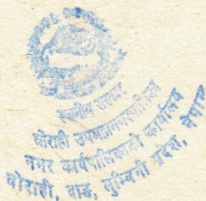 स्थानीय सरकार
घोराही उपमहानगरपालिका
नगर कार्यपालिकाको कार्यालय
घोराही, दाङ, लुम्बिनी प्रदेश, नेपाल